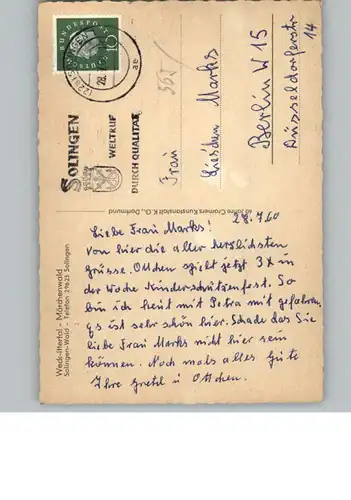 DEUTSCHE BUNDESPOST
10
(22a) SOLINGEN
28.
ae
SOLINGEN
WELTRUF
DURCH QUALITÄT
Frau
Lieschen Marks
Berlin W 15
Düsseldorferstr
14
Weck-Ittertal - Märchenwald
Solingen-Wald - Telefon 29625 Solingen
40 Jahre Cramers Kunstanstalt K.G., Dortmund
28.7.60
Liebe Frau Marks!
Von hier die aller herzlichsten
Grüsse. Ottchen spielt jetzt 3 x in
der Woche Kinderschützenfest. So
bin ich heut mit Petra mit gefahren,
es ist sehr schön hier. Schade das Sie
liebe Frau Marks nicht hier sein
können. Noch mals alles Gute
Ihre Gretel u Ottchen.